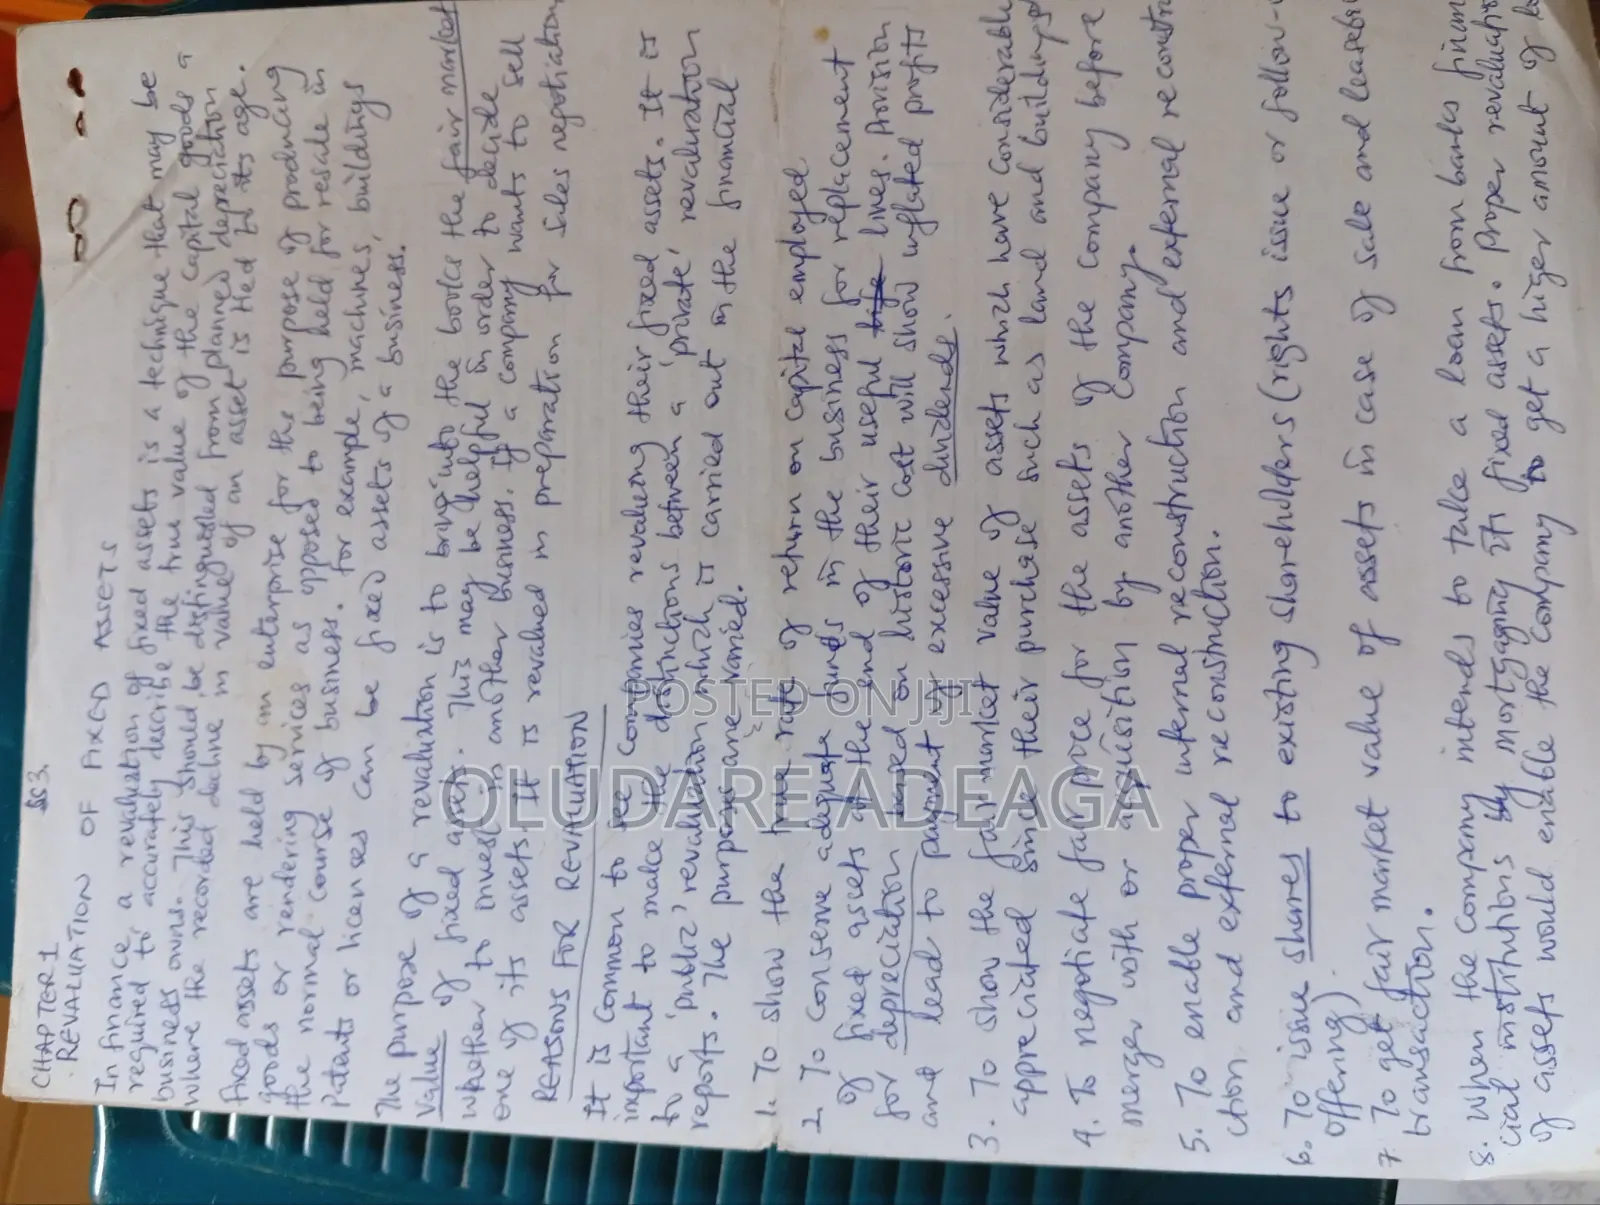 SS3.
CHAPTER 1
REVALUATION OF FIXED ASSETS
In finance, a revaluation of fixed assets is a technique that may be
required to accurately describe the true value of the capital goods a
business owns. This should be distinguished from planned depreciation
where the recorded decline in value of an asset is tied to its age.
Fixed assets are held by an enterprise for the purpose of producing
goods or rendering services as opposed to being held for resale in
the normal course of business. For example, machines, buildings
Patents or licenses can be fixed assets of a business.
The purpose of a revaluation is to bring into the books the fair market
value of fixed assets. This may be helpful in order to decide
whether to invest in another business. If a company wants to sell
one of its assets, It is revalued in preparation for sales negotiation
REASONS FOR REVALUATION
It is common to see companies revaluing their fixed assets. It is
important to make the distinctions between a 'private' revaluation
to a 'public' revaluation which is carried out in the financial
reports. The purposes are varied.
1. To show the true rate of return on capital employed
2 To conserve adequate funds in the business for replacement
of fixed assets at the end of their useful life lives. Provision
for depreciation based on historic cost will show inflated profits
and lead to payment of excessive dividends.
3. To show the fair market value of assets which have considerabl
appreciated since their purchase such as land and buildings
4. To negotiate fair price for the assets of the company before
merger with or acquisition by another company.
5. To enable proper internal reconstruction and external reconstru
ction and external reconstruction.
6. To issue shares to existing shareholders (rights issue or follow-
offering)
7. To get fair market value of assets in case of sale and leaseb
transaction.
8. When the company intends to take a loan from banks finan
cial institutions by mortgaging its fixed assets. Proper revaluation
of assets would enable the company to get a higer amount of
POSTED ON JIJI
OLUDARE ADEAGA